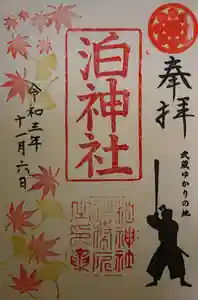 奉拝
武蔵ゆかりの地
泊神社
令和三年
十一月六日